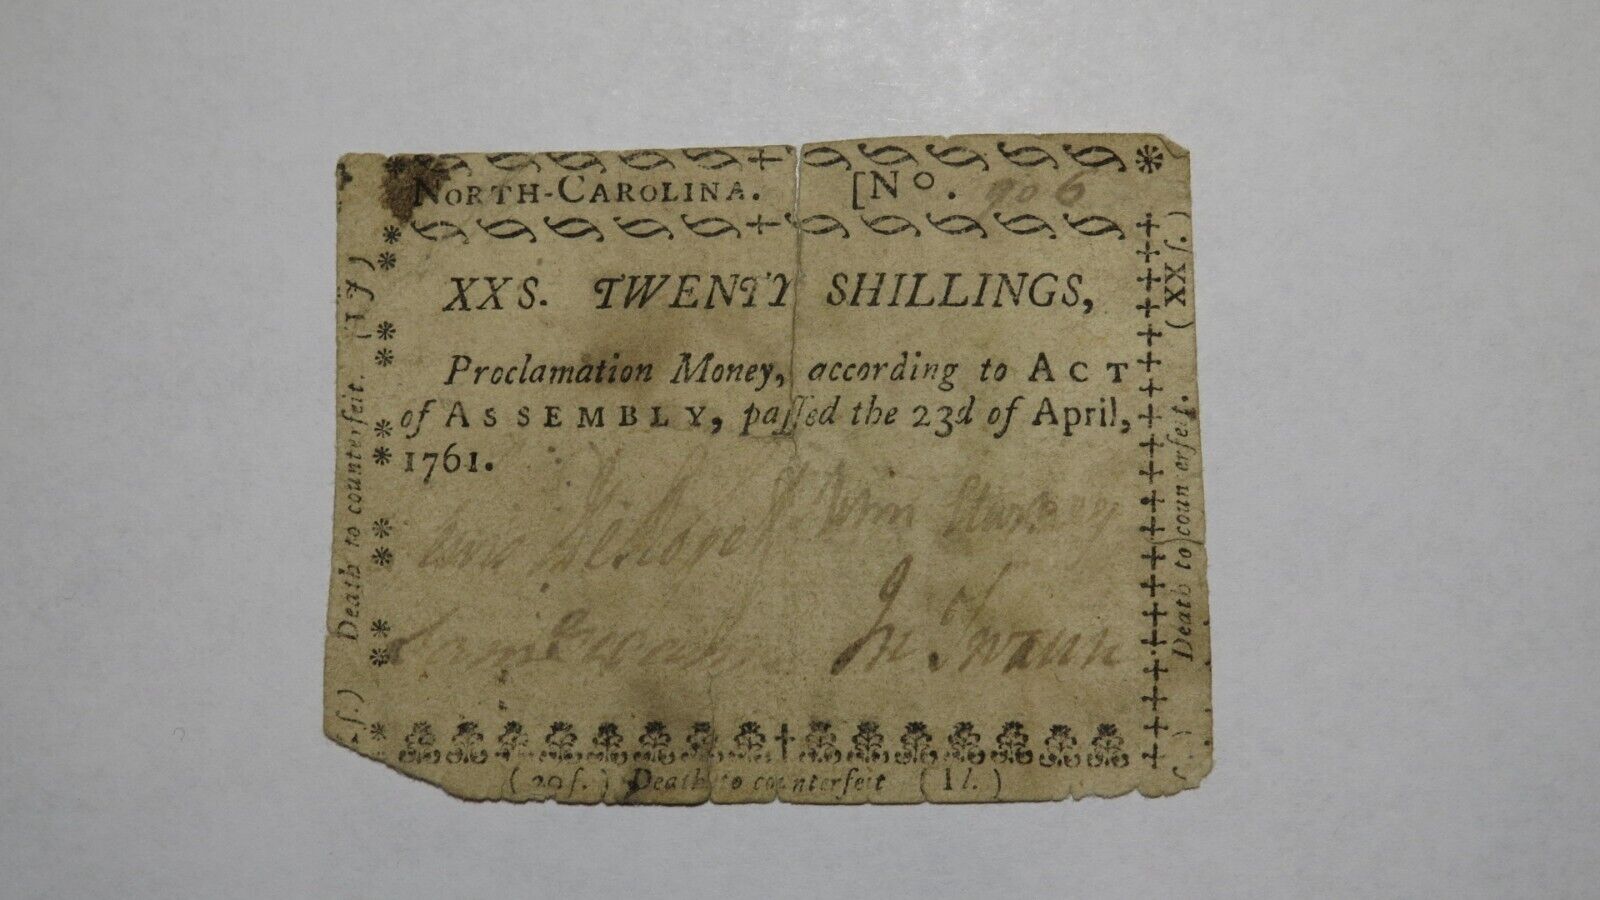 NORTH-CAROLINA. [No. 906
XXS. TWENTY SHILLINGS,
Proclamation Money, according to ACT
of ASSEMBLY, paſſed the 23d of April,
1761.
John Starkey
Jn Swann
Death to counterfeit.
Death to counterfeit.
(XXſ.)
(20ſ.) Death to counterfeit (1l.)